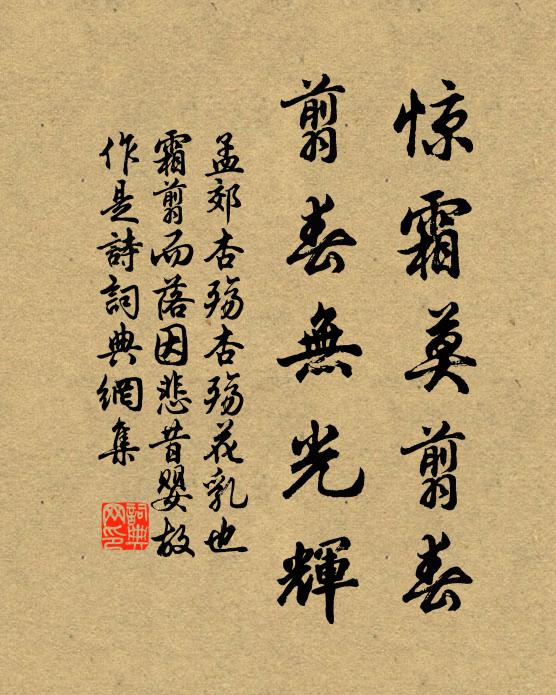 惊霜莫翦春
翦春無光輝
孟郊杏殤杏殤花乳也
霜翦而落因悲昔嬰故
作是詩詞典網集
詞典
网印